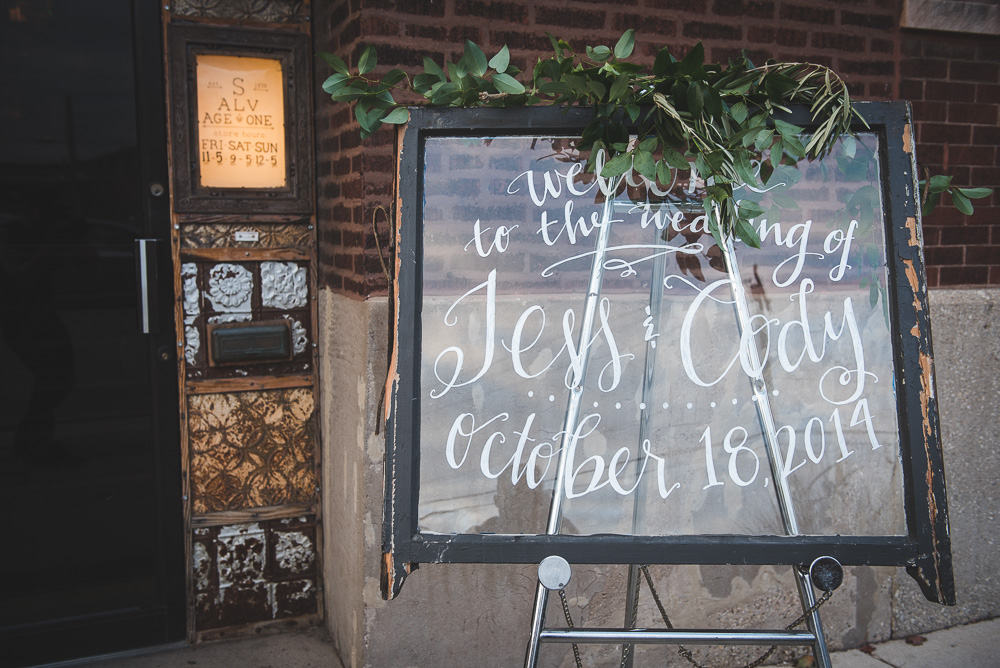 S
ALV
AGE ONE
store hours
FRI SAT SUN
11-5 9-5 12-5
welcome
to the wedding of
Jess & Cody
October 18, 2014